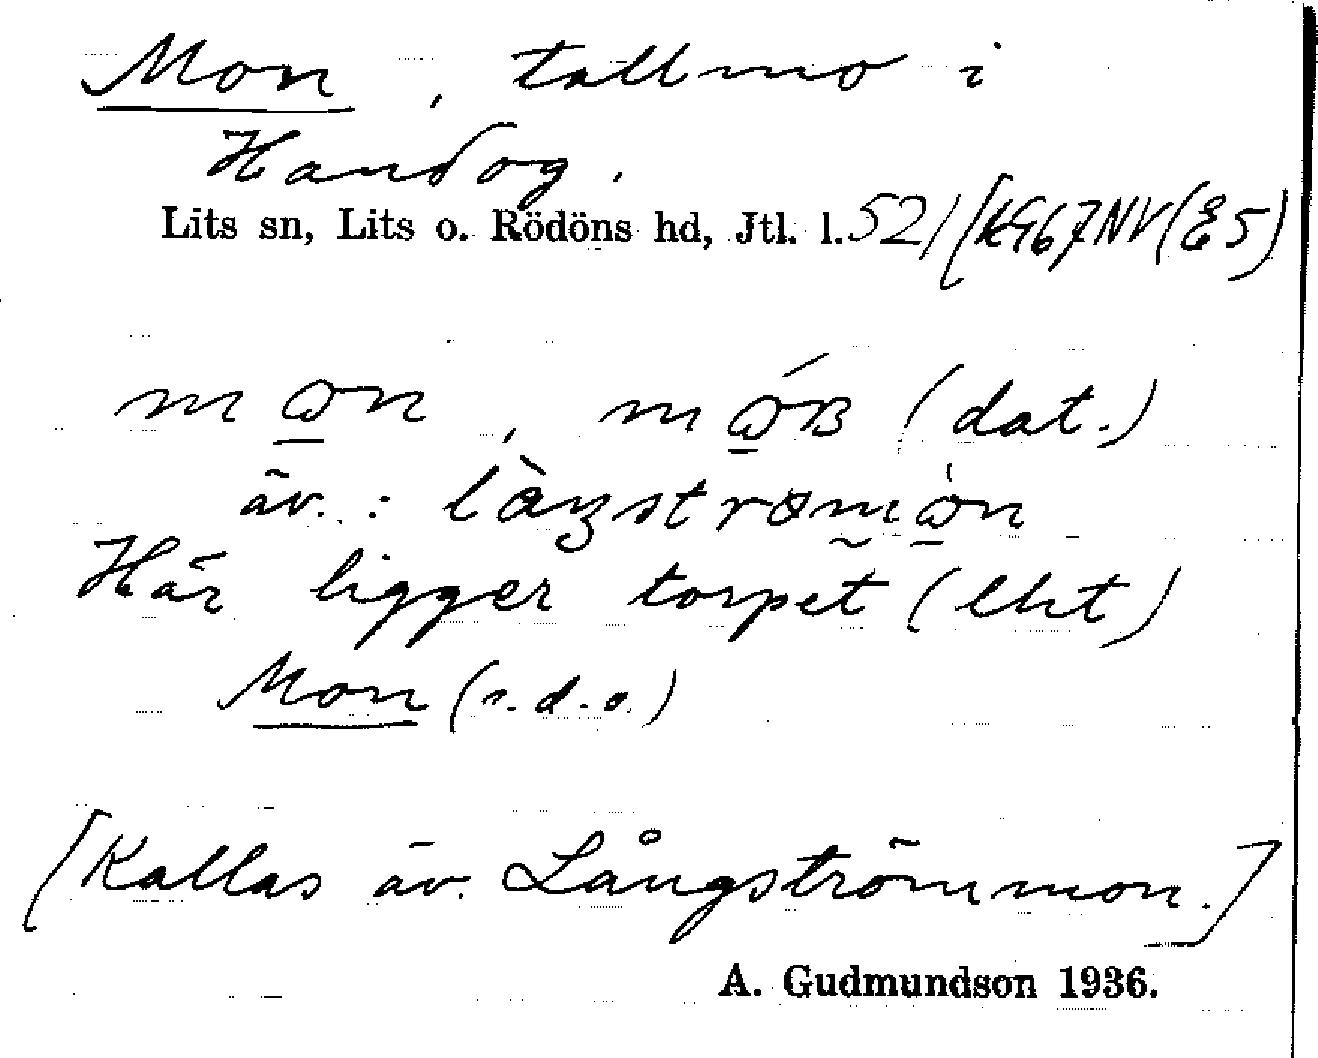 Mon, tallmo i
Handog.
Lits sn, Lits o. Rödöns hd, Jtl. l. 521/[K967NV(E5)
(dat.)
äv.:
Här ligger torpet (lht)
Mon (s.d.o.)
[Kallas äv. Långströmmon.]
A. Gudmundson 1936.